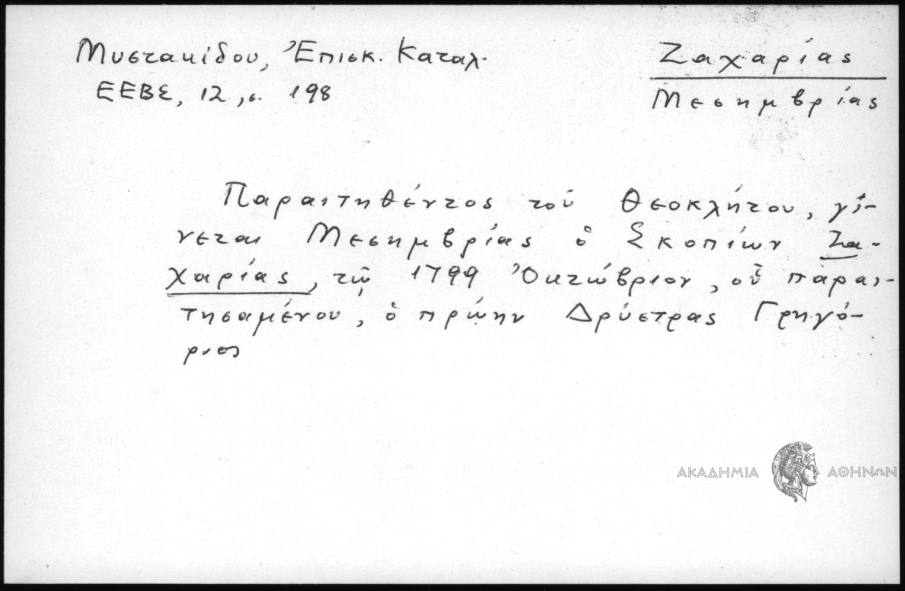 Μυστακίδου, Ἐπισκ. Καταλ.
ΕΕΒΣ, 12, σ. 198
Ζαχαρίας
Μεσημβρίας
Παραιτηθέντος τοῦ Θεοκλήτου, γί-
νεται Μεσημβρίας ὁ Σκοπίων Ζα-
χαρίας, τῷ 1799 Ὀκτώβριον, οὗ παραι-
τησαμένου, ὁ πρώην Δρύστρας Γρηγό-
ριος
ΑΚΑΔΗΜΙΑ ΑΘΗΝΩΝ